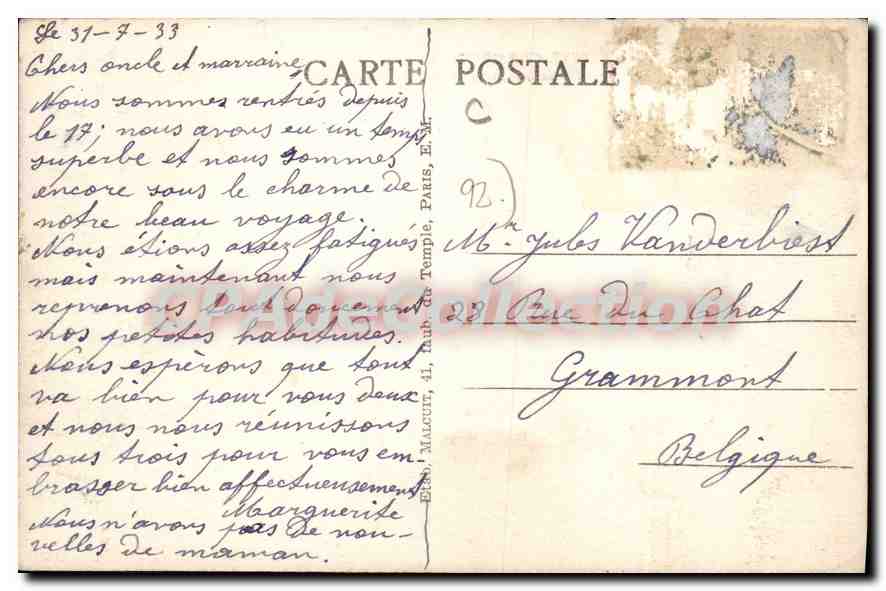 Le 31-7-33
Chers oncle et marraine,
Nous sommes rentrés depuis
le 17; nous avons eu un temps
superbe et nous sommes
encore sous le charme de
notre beau voyage.
Nous étions assez fatigués
mais maintenant nous
reprenons tout doucement
nos petites habitudes.
Nous espérons que tout
va bien pour vous deux
et nous nous réunissons
tous trois pour vous em-
brasser bien affectueusement
Marguerite
Nous n'avons pas de nou-
velles de maman.
CARTE POSTALE
Etab. MALCUIT, 41, faub. du Temple, PARIS, E. M.
C
92.)
Mr. Jules Vanderbiest
28 Rue du Chat
Grammont
Belgique
CPAdeCollection.com